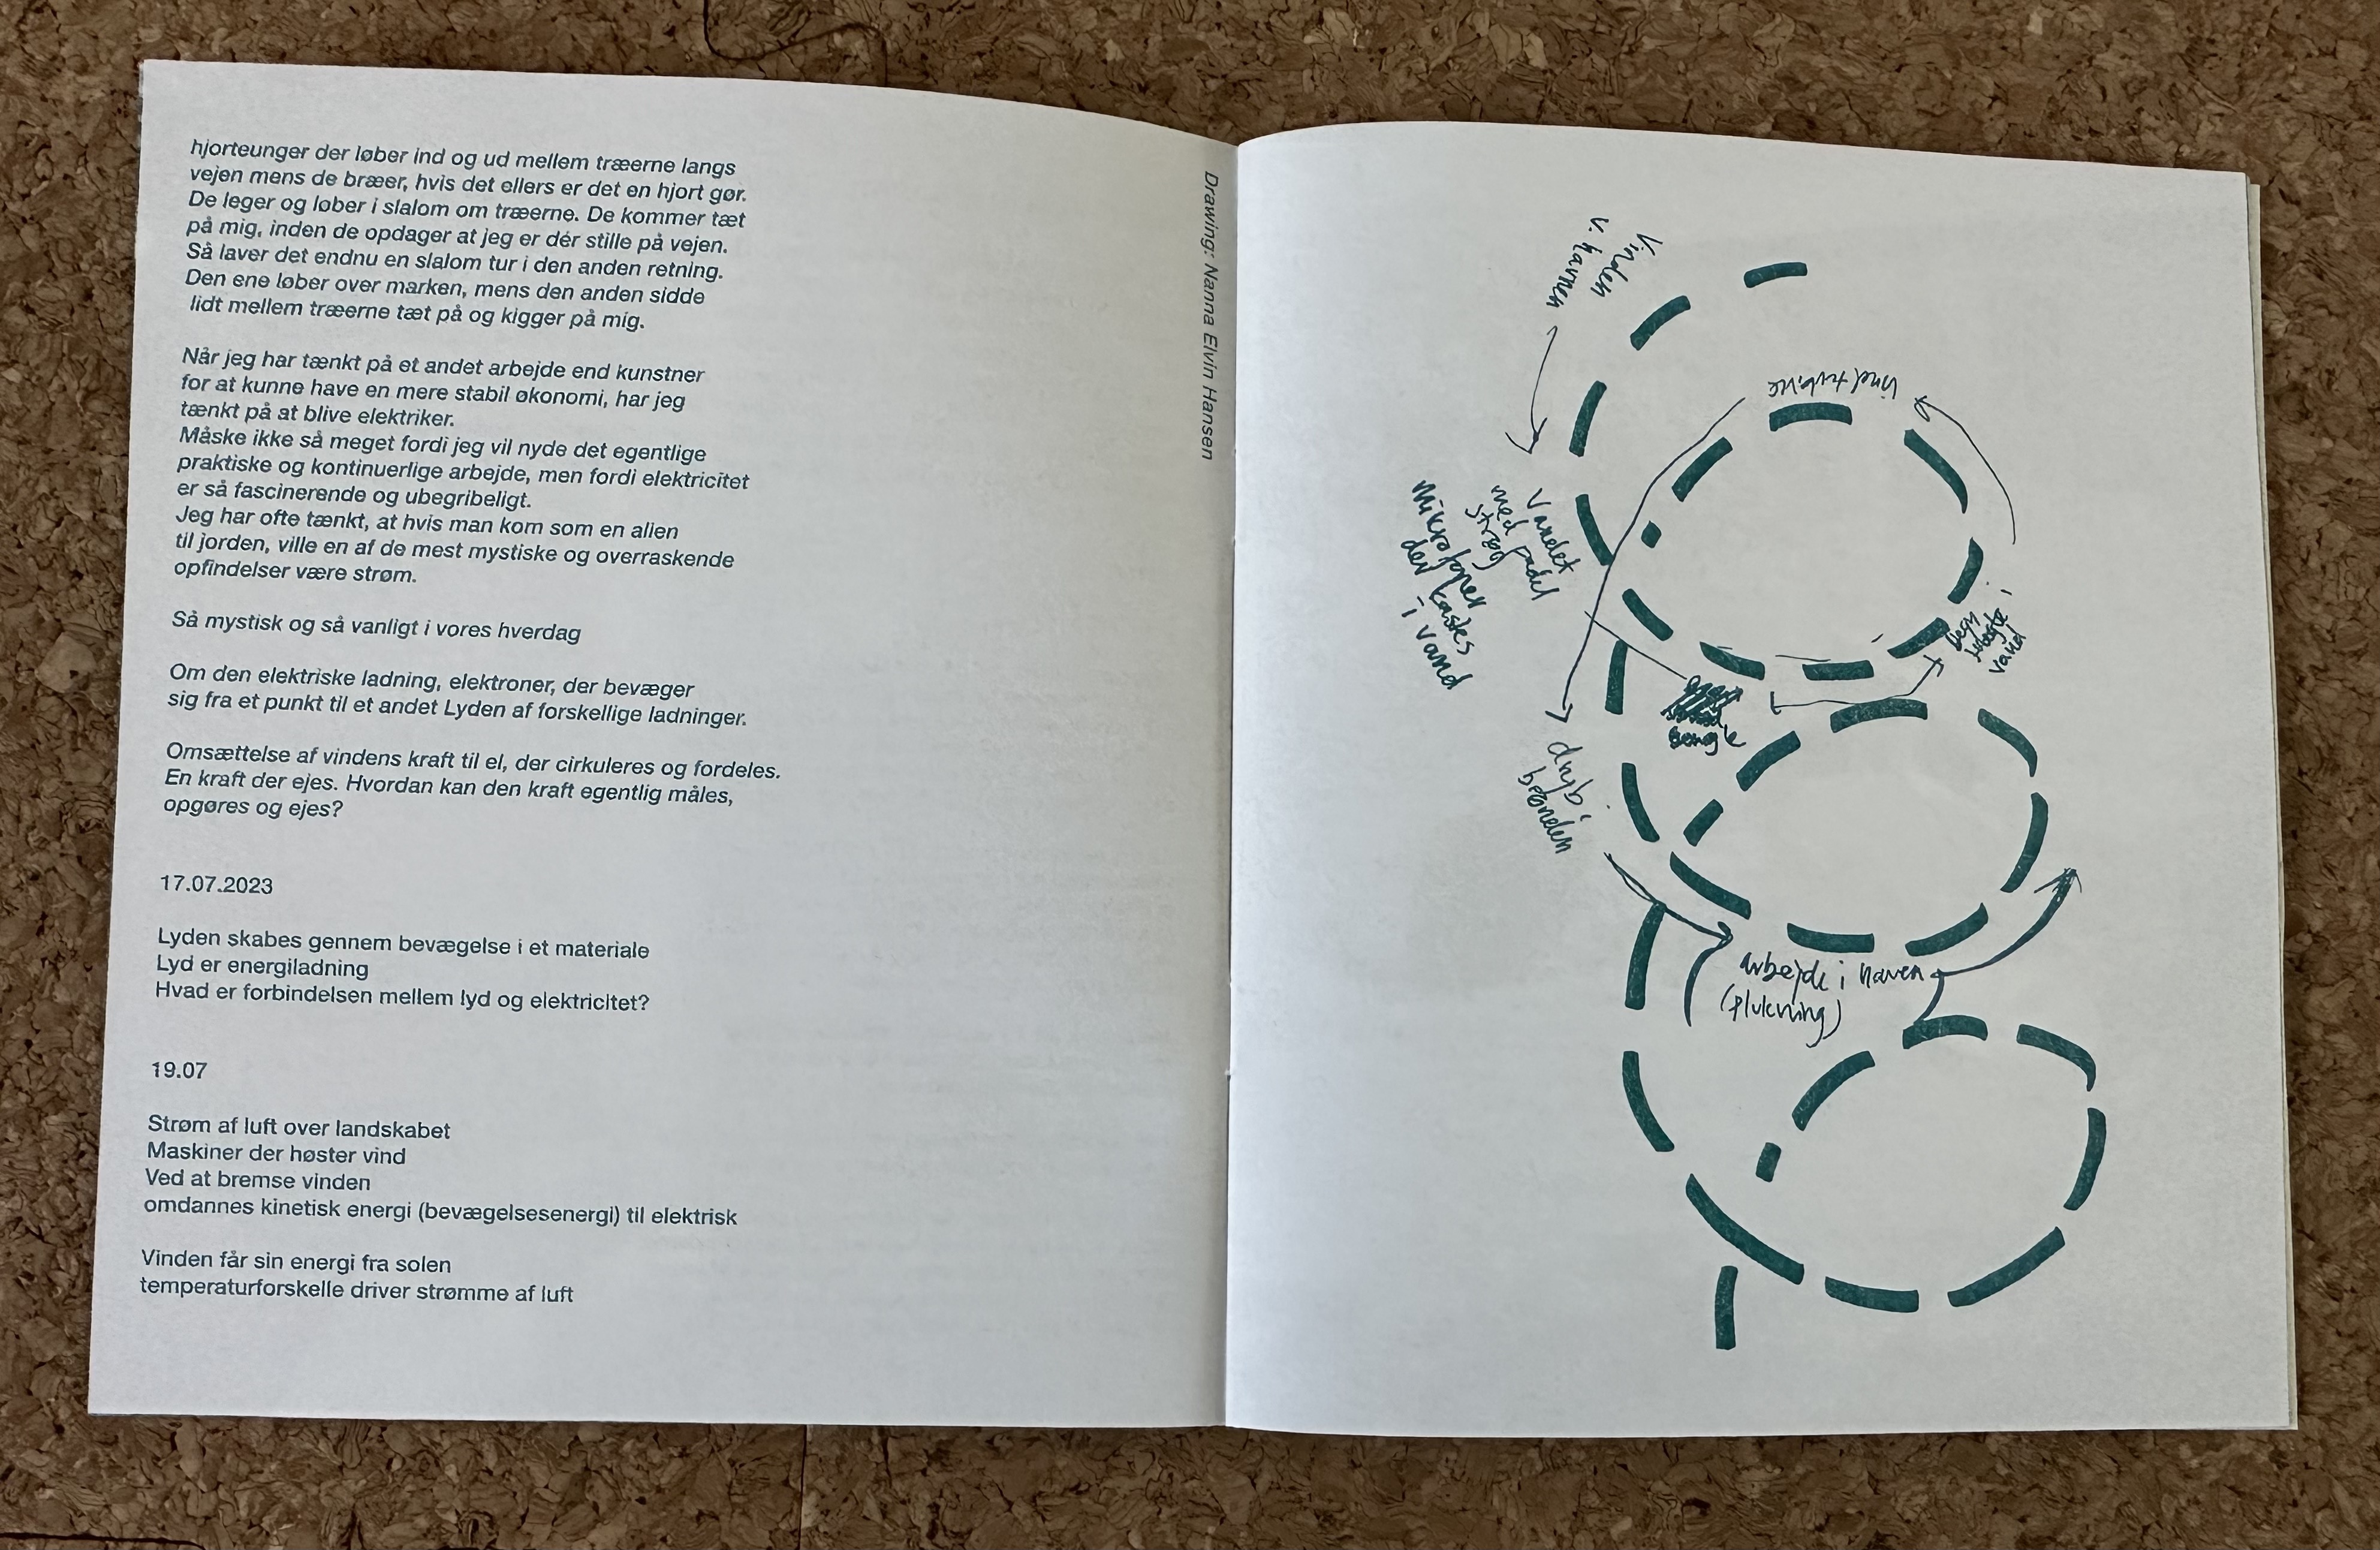 hjorteunger der løber ind og ud mellem træerne langs
vejen mens de bræer, hvis det ellers er det en hjort gør.
De leger og løber i slalom om træerne. De kommer tæt
på mig, inden de opdager at jeg er dér stille på vejen.
Så laver det endnu en slalom tur i den anden retning.
Den ene løber over marken, mens den anden sidde
lidt mellem træerne tæt på og kigger på mig.
Når jeg har tænkt på et andet arbejde end kunstner
for at kunne have en mere stabil økonomi, har jeg
tænkt på at blive elektriker.
Måske ikke så meget fordi jeg vil nyde det egentlige
praktiske og kontinuerlige arbejde, men fordi elektricitet
er så fascinerende og ubegribeligt.
Jeg har ofte tænkt, at hvis man kom som en alien
til jorden, ville en af de mest mystiske og overraskende
opfindelser være strøm.
Så mystisk og så vanligt i vores hverdag
Om den elektriske ladning, elektroner, der bevæger
sig fra et punkt til et andet Lyden af forskellige ladninger.
Omsættelse af vindens kraft til el, der cirkuleres og fordeles.
En kraft der ejes. Hvordan kan den kraft egentlig måles,
opgøres og ejes?
17.07.2023
Lyden skabes gennem bevægelse i et materiale
Lyd er energiladning
Hvad er forbindelsen mellem lyd og elektricitet?
19.07
Strøm af luft over landskabet
Maskiner der høster vind
Ved at bremse vinden
omdannes kinetisk energi (bevægelsesenergi) til elektrisk
Vinden får sin energi fra solen
temperaturforskelle driver strømme af luft
Drawing: Nanna Elvin Hansen
Vinden
v. havnen
vindturbine
Vandet
med padel
strøg
mikrofoner
der kastes
i vand
vand
dryb i
brønden
arbejde i haven
(plukning)